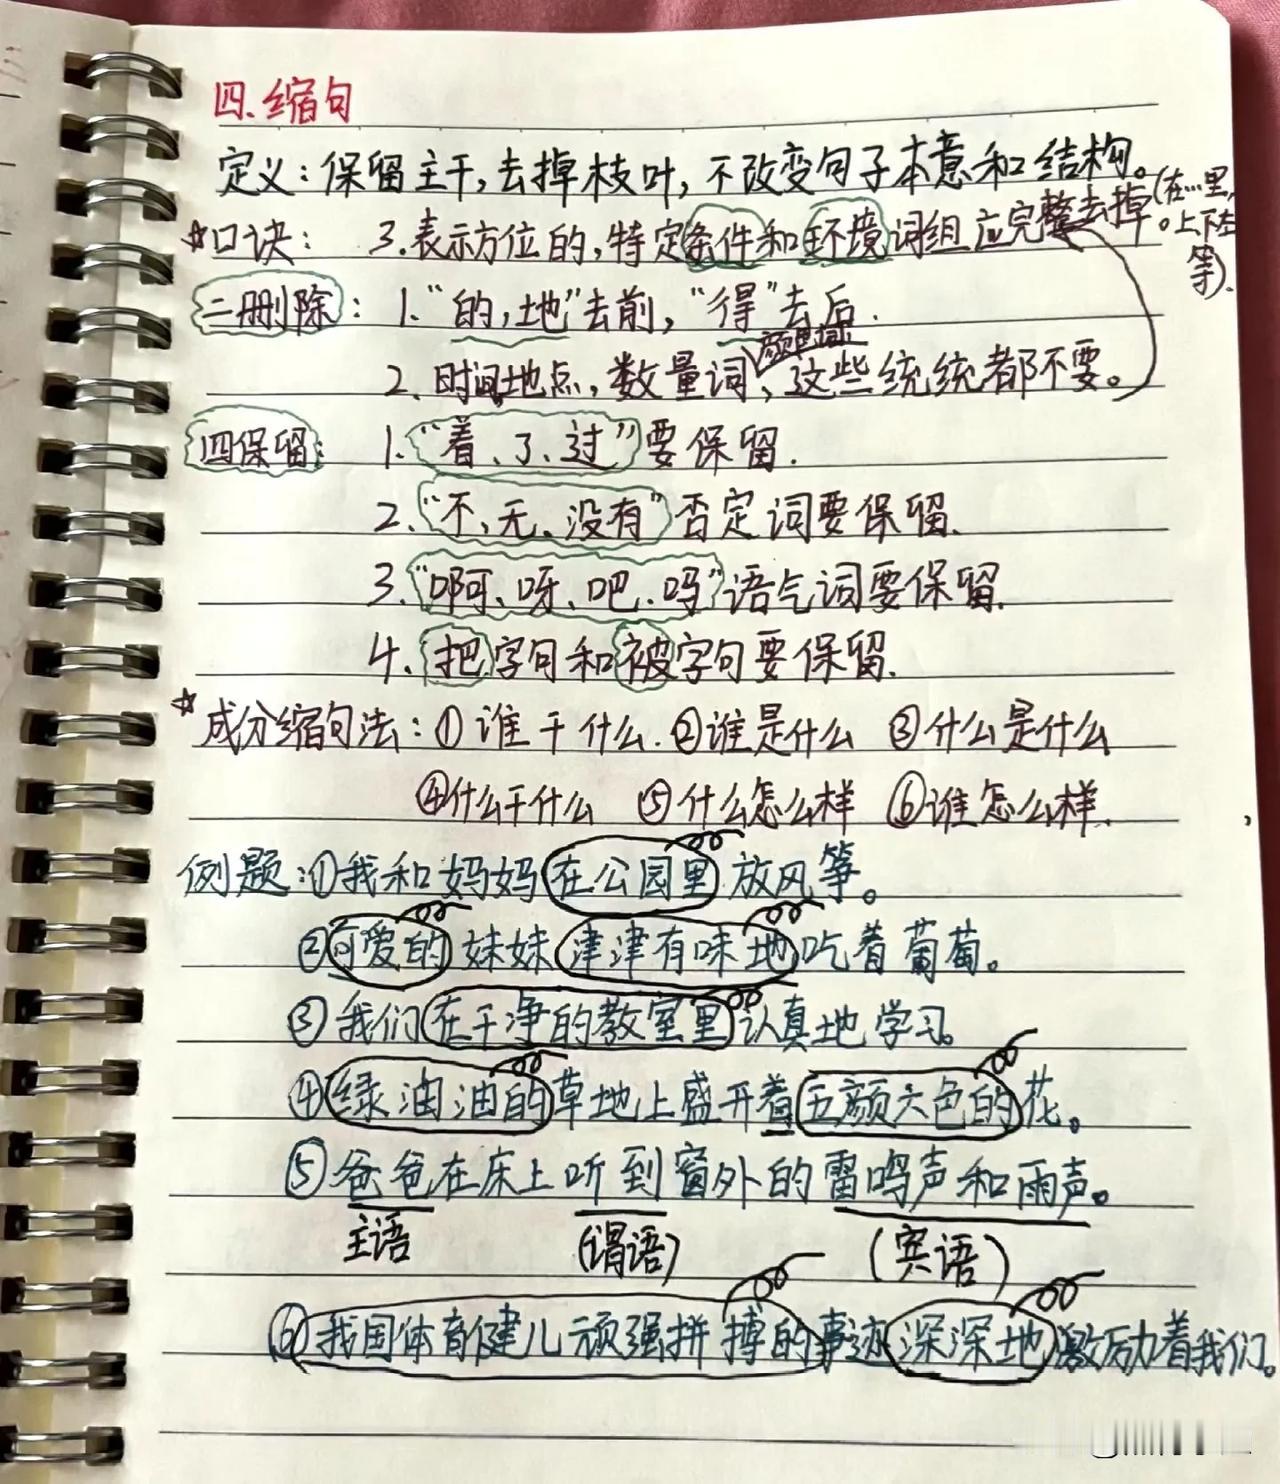 四.缩句
定义：保留主干，去掉枝叶，不改变句子本意和结构。
☆口诀： 3.表示方位的，特定条件和环境词组应完整去掉(在…里，
。上下左
等).
二删除： 1.“的，地”去前，“得”去后.
2.时间地点，数量词、这些统统都不要。
四保留： 1.“着、了、过”要保留.
2.“不，无、没有”否定词要保留.
3.“啊、呀、吧.吗”语气词要保留.
4.把字句和被字句要保留.
☆成分缩句法：①谁干什么.②谁是什么 ③什么是什么
④什么干什么 ⑤什么怎么样 ⑥谁怎么样.
例题：①我和妈妈在公园里放风筝。
②可爱的妹妹津津有味地吃着葡萄。
③我们在干净的教室里认真地学习。
④绿油油的草地上盛开着五颜六色的花。
⑤爸爸在床上听到窗外的雷鸣声和雨声。
主语 (谓语) (宾语)
⑥我国体育健儿顽强拼搏的事迹深深地激励着我们。